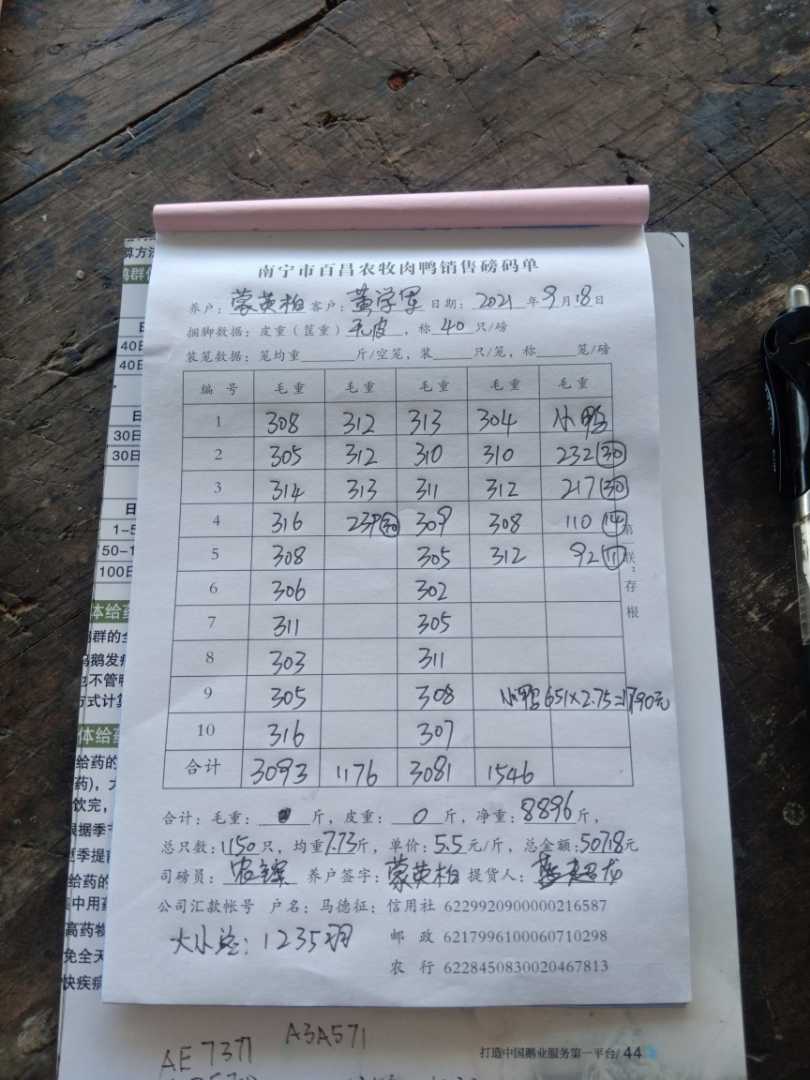 南宁市百昌农牧肉鸭销售磅码单
养户：蒙英柏 客户：黄学军 日期：2021年9月18日
捆脚数据：皮重（筐重）毛皮，称 40 只/磅
装笼数据：笼均重 斤/空笼，装 只/笼，称 笼/磅
编号 毛重 毛重 毛重 毛重 毛重
1 308 312 313 304 小鸭
2 305 312 310 310 232 30
3 314 313 311 312 217 30
4 316 239 30 309 308 110 14
5 308 305 312 92 11
6 306 302
7 311 305
8 303 311
9 305 308 小鸭 651×2.75=1790元
10 316 307
合计 3093 1176 3081 1546
第一联：存根
合计：毛重： 斤，皮重：0斤，净重：8896斤，
总只数：1150只，均重7.73斤，单价：5.5元/斤，总金额：50718元
司磅员： 养户签字：蒙英柏 提货人：
公司汇款帐号 户名：马德征：信用社 6229920900000216587
大小总：1235羽 邮政 6217996100060710298
农行 6228450830020467813
打造中国鹅业服务第一平台/44
A3A571
AE7377
算方法
40日
40日
30日
30日
50-1
100日
体给药
体给药